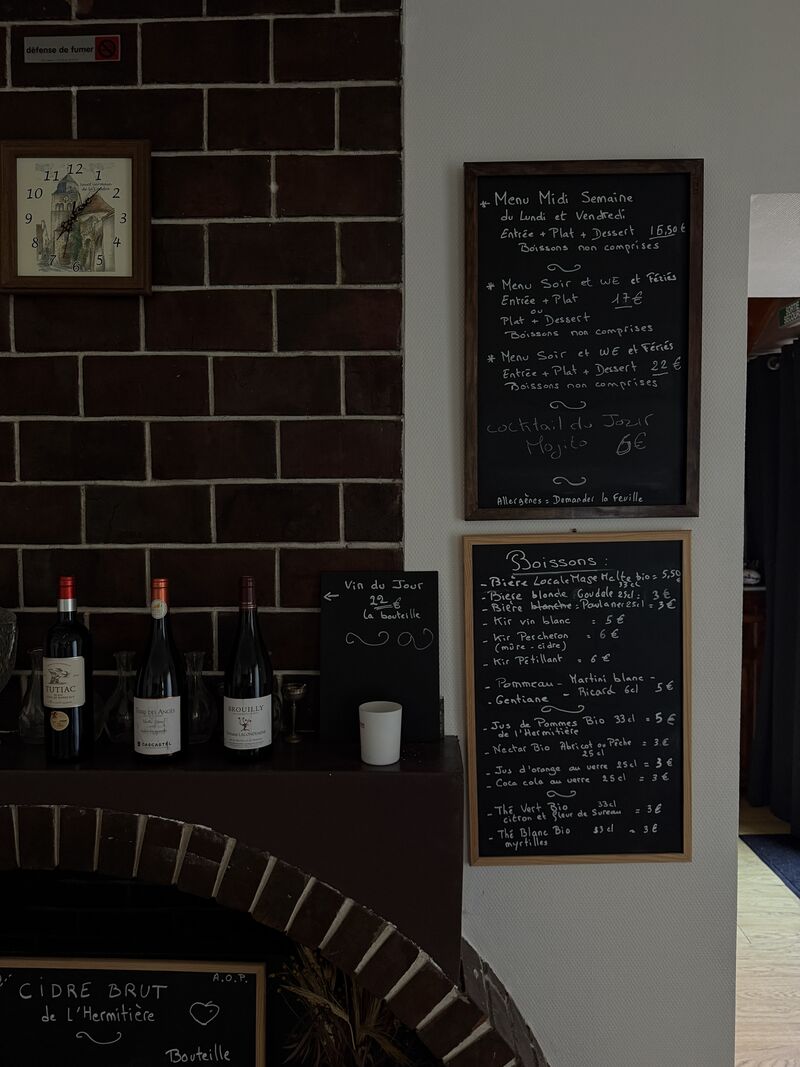 défense de fumer
12
1
2
3
4
5
6
7
8
9
10
11
* Menu Midi Semaine
du Lundi et Vendredi
Entrée + Plat + Dessert 16,50€
Boissons non comprises
* Menu Soir et WE et Fériés
Entrée + Plat 17€
ou
Plat + Dessert
Boissons non comprises
* Menu Soir et WE et Fériés
Entrée + Plat + Dessert 22 €
Boissons non comprises
Cocktail du Jour
Mojito 6€
Allergènes = Demander la Feuille
Boissons :
- Bière Locale Mage Malte bio = 5,50 €
33cl
- Bière blonde Goudale 25cl : 3 €
- Bière blanche : Paulaner 25cl = 3 €
- Kir vin blanc = 5 €
- Kir Percheron = 6 €
(mûre - cidre)
- Kir Pétillant = 6 €
- Pommeau - Martini blanc -
- Gentiane - Ricard 6cl 5€
- Jus de Pommes Bio 33cl = 5 €
de l'Hermitière
- Nectar Bio Abricot ou Pêche = 3 €
25cl
- Jus d'orange au verre 25cl = 3 €
- Coca cola au verre 25cl = 3 €
- Thé Vert Bio 33cl = 3€
citron et fleur de Sureau
- Thé Blanc Bio 33cl = 3€
myrtilles
Vin du Jour
← 22 €
la bouteille
TUTIAC
TERRE DES ANGES
CASCASTEL
BROUILLY
CIDRE BRUT
A.O.P.
de L'Hermitière
Bouteille